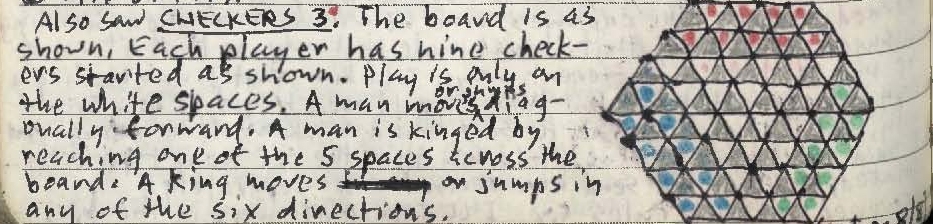 Also saw CHECKERS 3. The board is as
shown. Each player has nine check-
ers started as shown. Play is only on
the white spaces. A man moves or jumps diag-
onally forward. A man is kinged by
reaching one of the 5 spaces across the
board. A king moves or jumps in
any of the six directions.